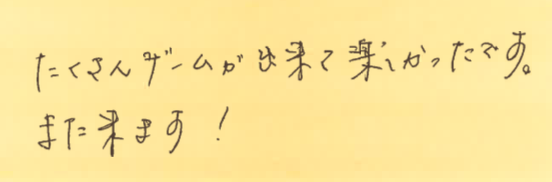 たくさんゲームが出来て楽しかったです。
また来ます！